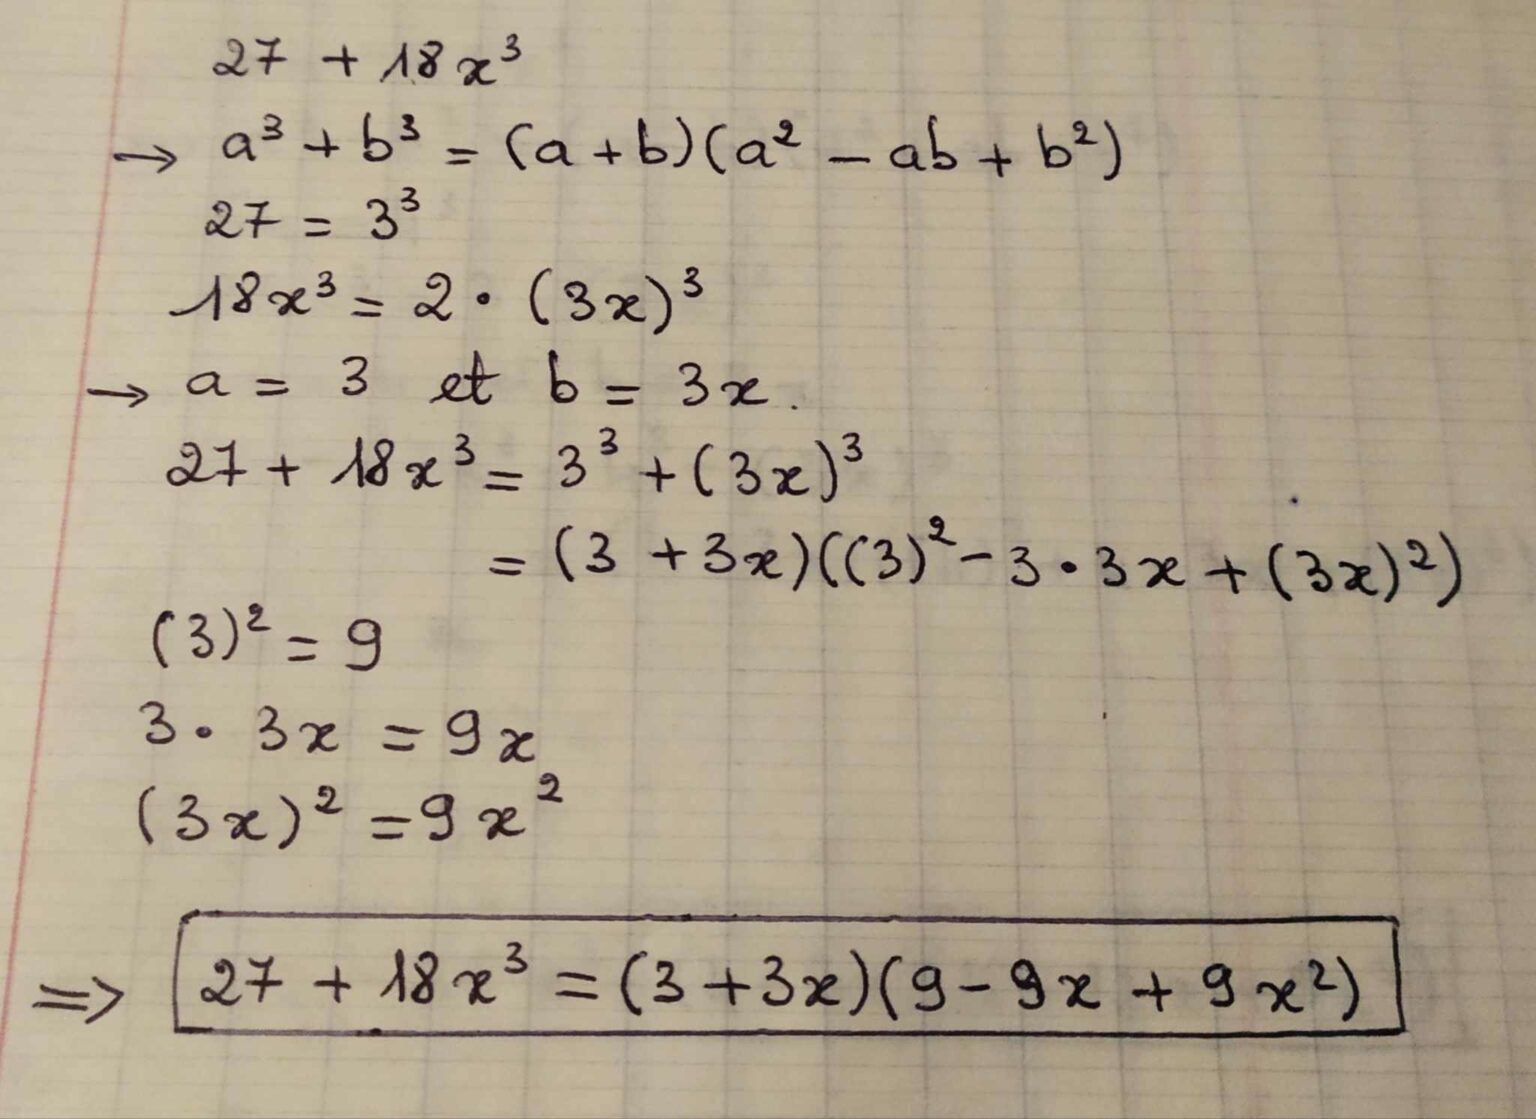 27 + 18x³
→ a³ + b³ = (a + b)(a² – ab + b²)
27 = 3³
18x³ = 2 • (3x)³
→ a = 3 et b = 3x.
27 + 18x³ = 3³ + (3x)³
= (3 + 3x)((3)² – 3 • 3x + (3x)²)
(3)² = 9
3 • 3x = 9x
(3x)² = 9x²
⇒ 27 + 18x³ = (3 + 3x)(9 – 9x + 9x²)